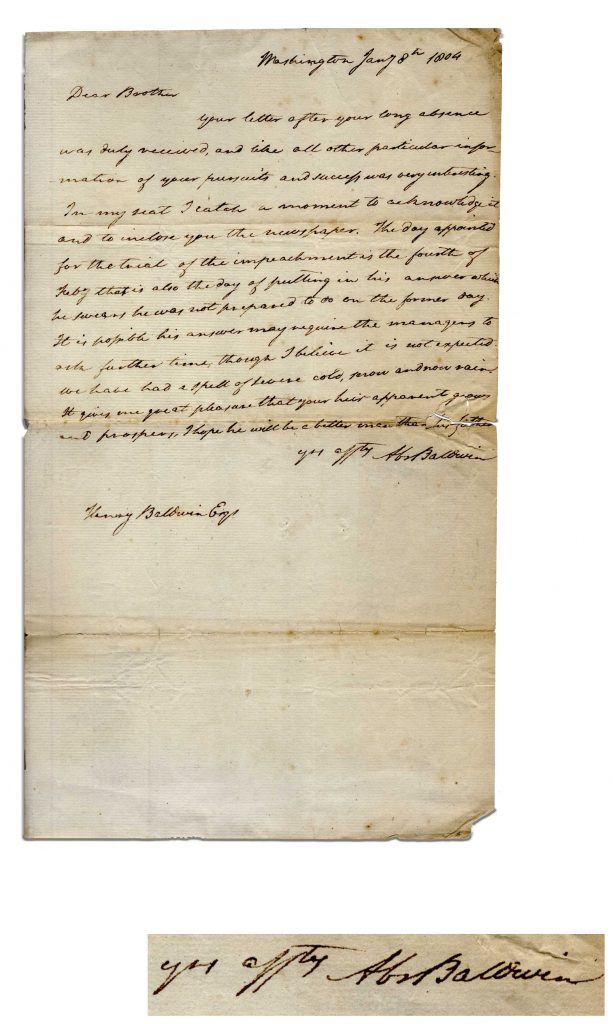 Washington Jany 8th 1804
Dear Brother
your letter after your long absence
was duly received, and like all other particular infor
mation of your pursuits and success was very interesting.
In my seat I catch a moment to acknowledge it
and to inclose you the newspaper. The day appointed
for the trial of the impeachment is the fourth of
Feby that is also the day of putting in his answer which
he swears he was not prepared to do on the former day.
It is possible his answer may require the managers to
ask further time, though I believe it is not expected.
we have had a spell of severe cold, snow and now rain
It gives me great pleasure that your heir apparent grows
and prospers, I hope he will be a better man than his father
yrs affty Abr Baldwin
Henry Baldwin Esqr
yrs affty Abr Baldwin